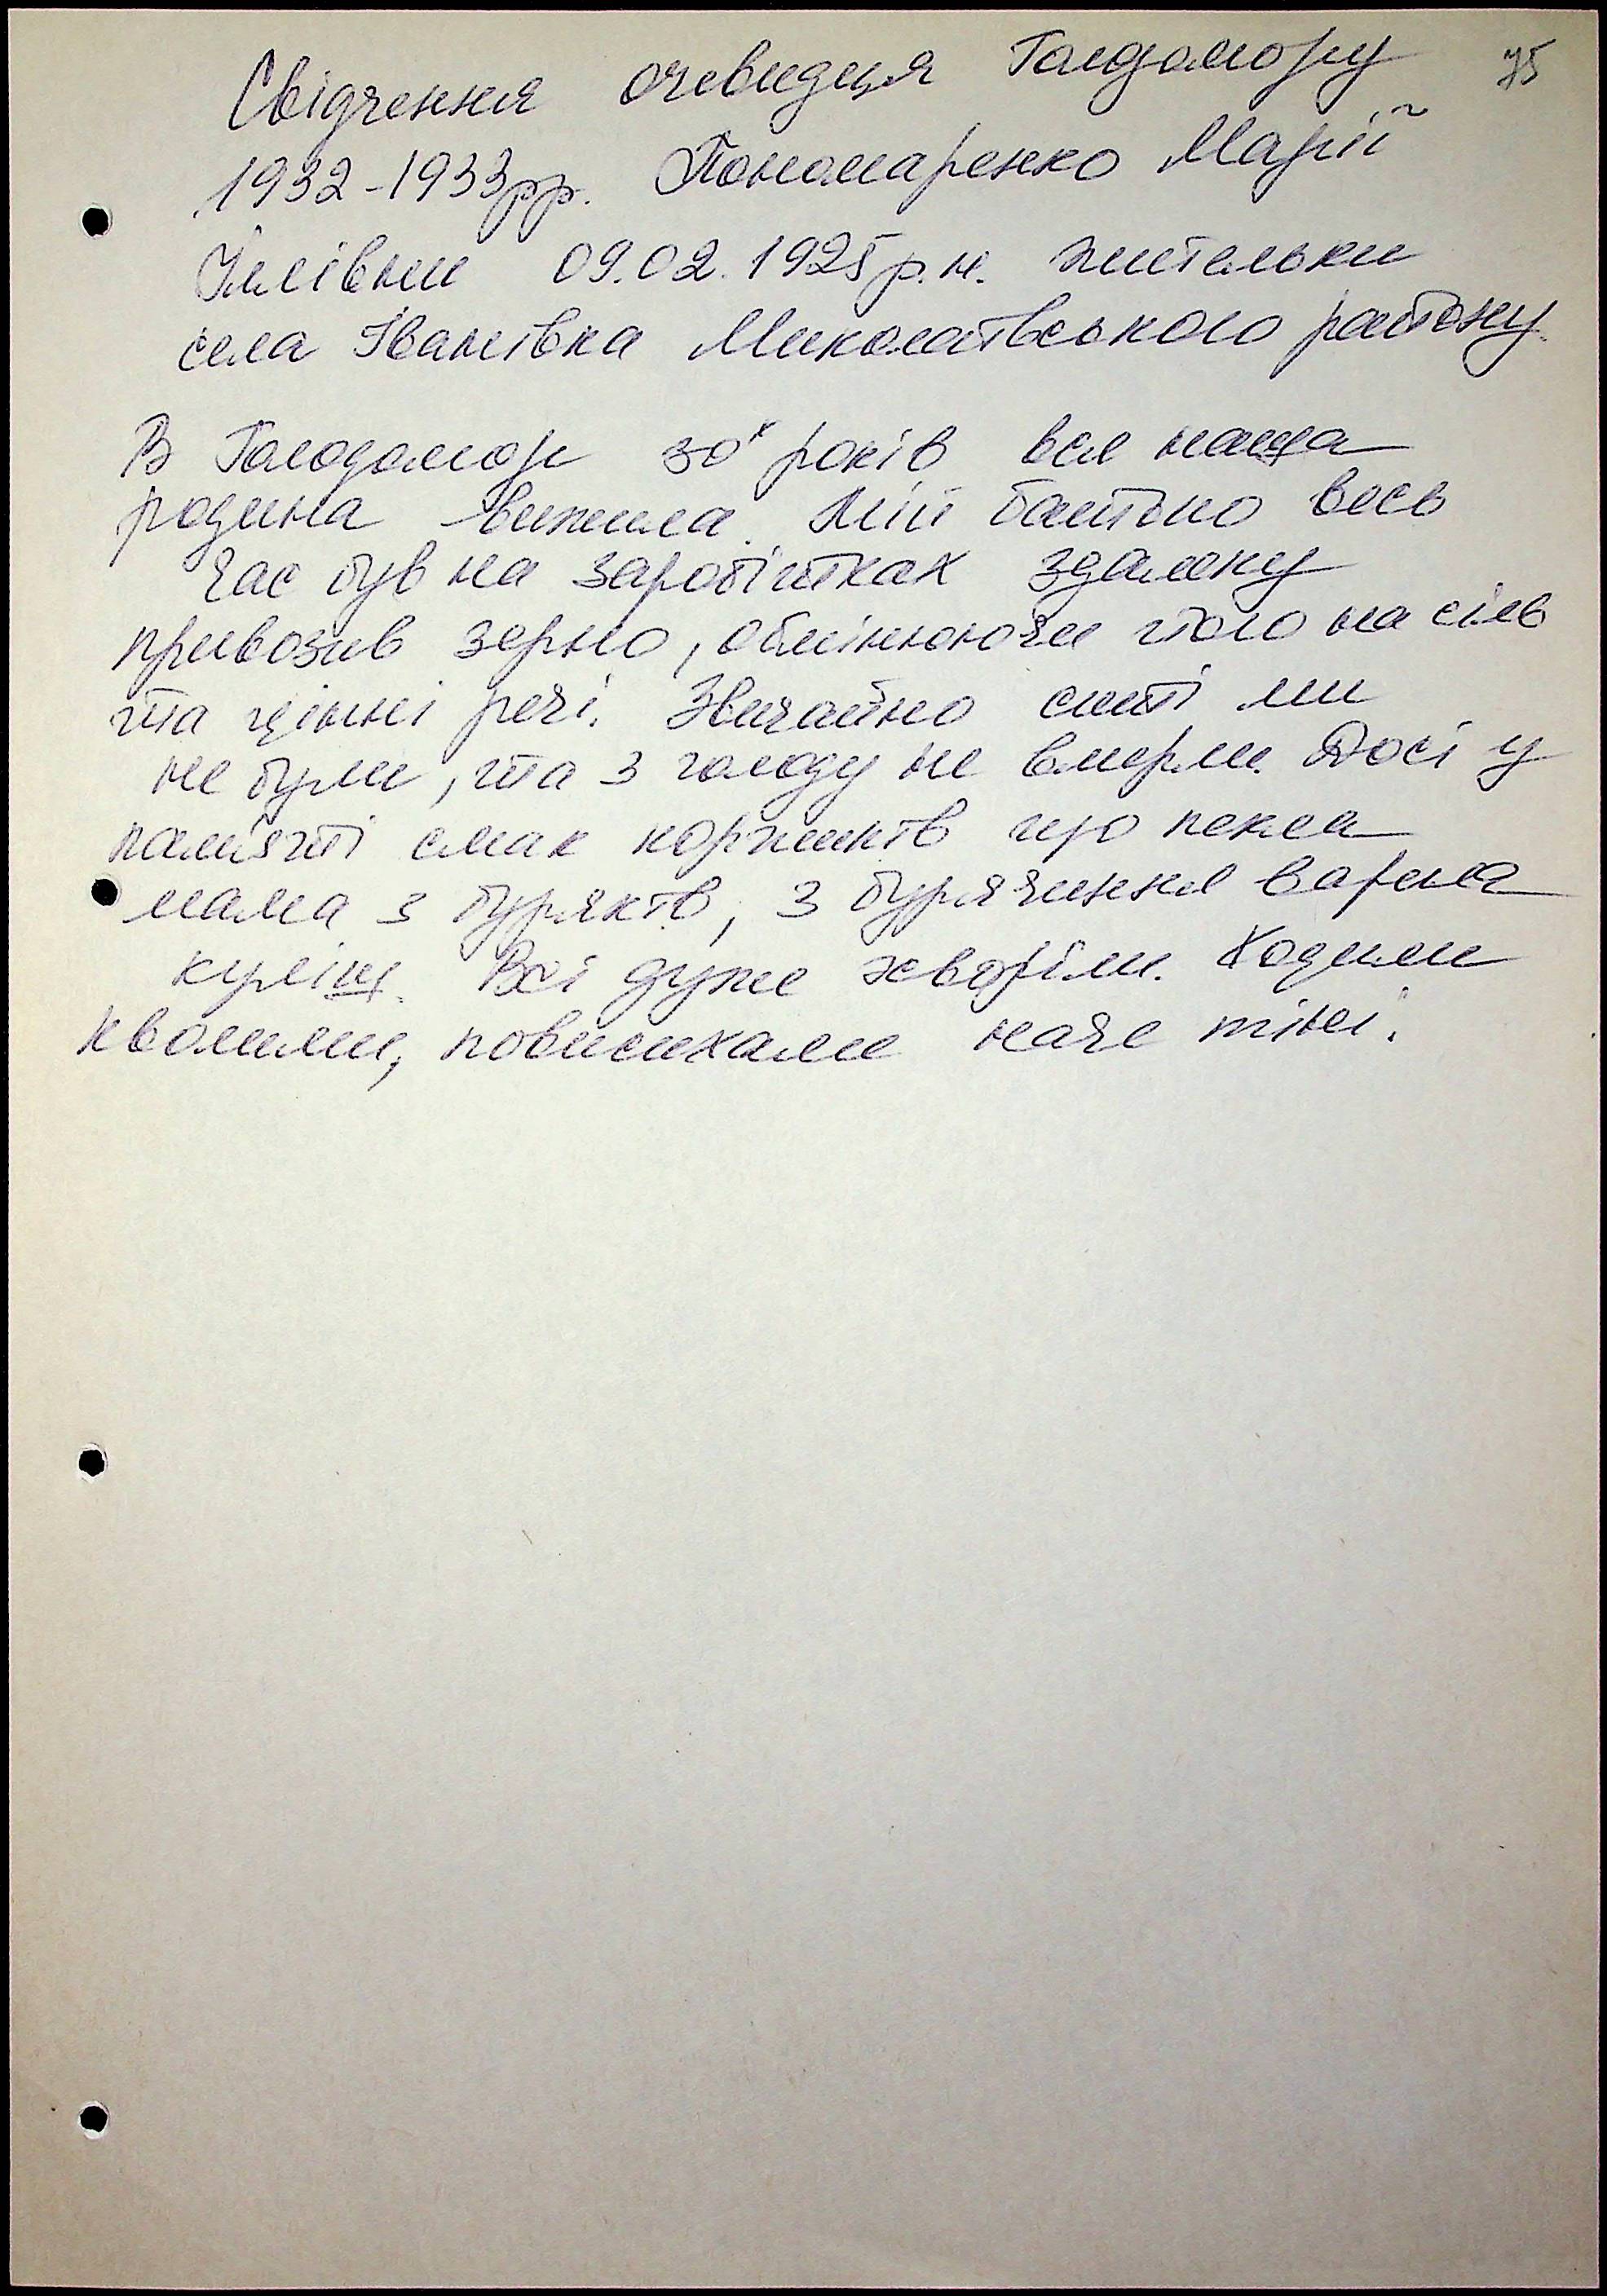 Свідчення очевидця Голдомору 75
1932-1933рр. Пономаренко Марії
Іллівни 09.02.1925р.н. жительки
села Іванівка Миколаївського району.
В Голодомор 30х років вся наша
родина вижила. Мій батько весь
час був на заробітках здалеку
привозив зерно, обмінюючи його на сіль
та цінні речі. Звичайно ситі ми
не були, та з голоду не вмерли. Досі у
пам'яті смак коржиків що пекла
мама з буряків, з бурячиння варила
куліш. Всі дуже хворіли. Ходили
кволими, повисихали наче тіні.